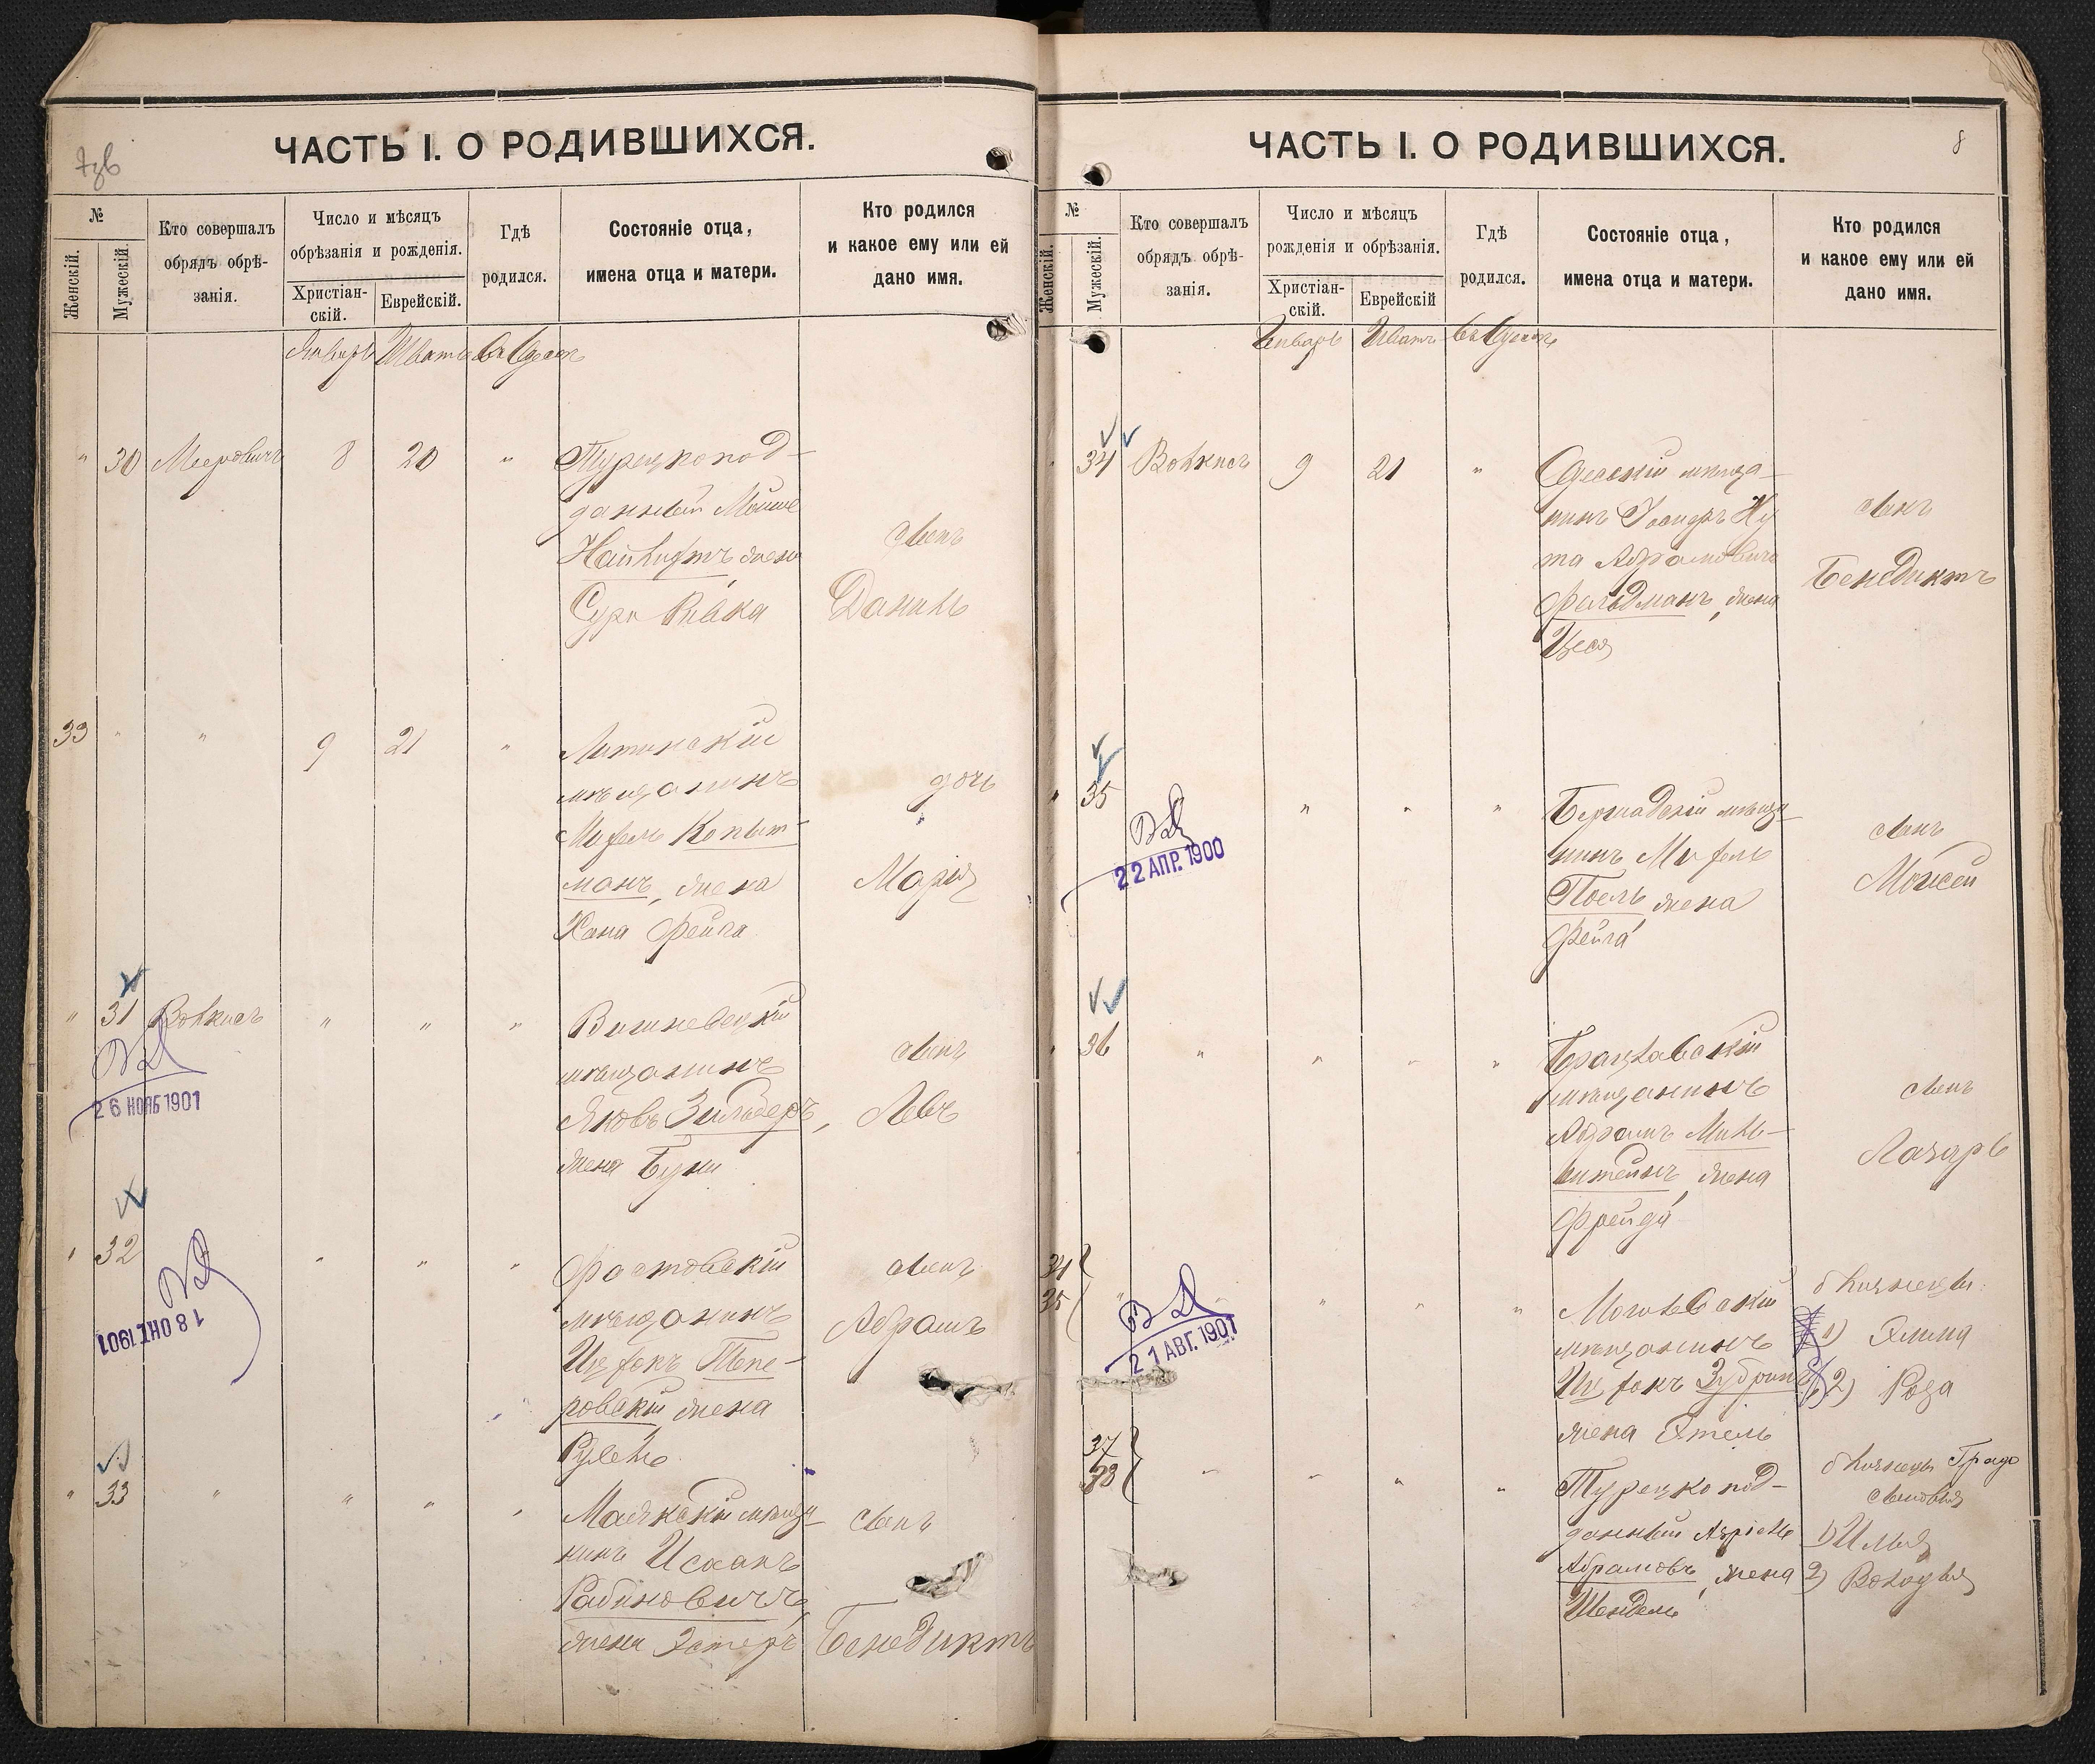 ЧАСТЬ I. О РОДИВШИХСЯ.
№
Женскій.
Мужескій.
Кто совершалъ
обрядъ обрѣ-
занія.
Число и мѣсяцъ
обрѣзанія и рожденія.
Христіан-
скій.
Еврейскій.
Гдѣ
родился.
Состояніе отца,
имена отца и матери.
Кто родился
и какое ему или ей
дано имя.
Январь Шватъ въ Одессѣ
" 30 Мееровичъ 8 20 "
Турецкопод-
данный Мойше
жена
Сура Ривка
сынъ
Даніилъ
33 " " 9 21 "
Литинскій
мѣщанинъ
Михель Копыт-
манъ, жена
Хана Фейга
дочь
Марія
" 31 Волкисъ " " "
Вишневецкій
мѣщанинъ
Яковъ Зильберъ,
жена Буня
сынъ
Левъ
26 НОЯБ 1901
" 32 " " "
Фастовскій
мѣщанинъ
Ицхокъ Тепе-
ровскій жена
Рухель
сынъ
Абрамъ
18 ОКТ 1901
" 33 " " " "
Маякскій мѣща-
нинъ Исаакъ
Рабиновичъ,
жена Эстеръ
сынъ
Бенедиктъ
ЧАСТЬ I. О РОДИВШИХСЯ.
8
№
Женскій.
Мужескій.
Кто совершалъ
обрядъ обрѣ-
занія.
Число и мѣсяцъ
рожденія и обрѣзанія.
Христіан-
скій.
Еврейскій
Гдѣ
родился.
Состояніе отца,
имена отца и матери.
Кто родился
и какое ему или ей
дано имя.
Январь Шватъ въ Одессѣ
34 Волкисъ 9 21 "
Одесскій мѣща-
нинъ Ну
та Абрамовичъ
Фельдманъ, жена
Цеся
сынъ
Бенедиктъ
" 35 " " "
Бершадскій мѣща-
нинъ Михель
Поель жена
Фейга
сынъ
Моисей
22 АПР. 1900
" 36 " " " "
Брацлавскій
мѣщанинъ
Абрамъ Миль-
штейнъ, жена
Фрейда
сынъ
Лазарь
34
35 " " " " "
Могилевскій
мѣщанинъ
Ицхокъ
жена Этель
близнецы:
1) Эмма
2) Роза
21 АВГ. 1901
37
38 " " " "
Турецкопод-
данный Азріель
Абрамовъ, жена
Шендель
близнецы
сыновья
1) Илья
2)